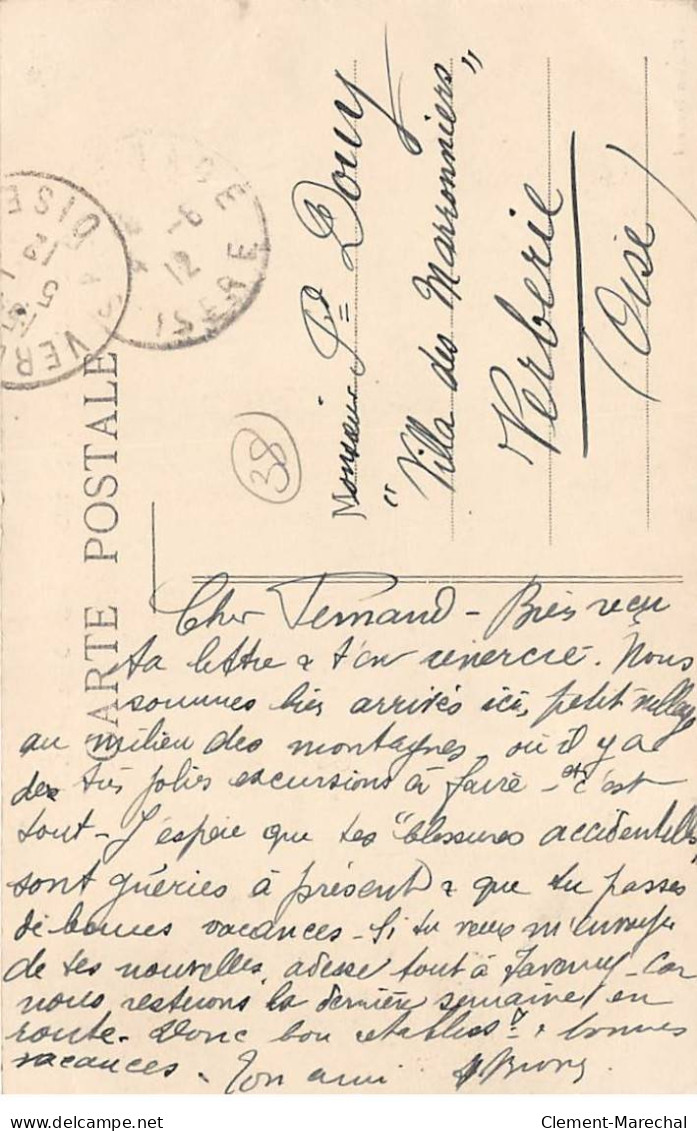 CARTE POSTALE
ISERE
12 -8
OISE
VER
38
Monsieur Fd Douy
"Villa des Marronniers"
Verberie
(Oise)
Cher Fernand - Bien reçu
ta lettre & t'en remercie. Nous
sommes bien arrivés ici, petit village
au milieu des montagnes où il y a
de très jolies excursions à faire - et c'est
tout - J'espère que tes "blessures accidentelles"
sont guéries à présent & que tu passes
de bonnes vacances - Si tu veux m'envoyer
de tes nouvelles, adesse tout à Taverny - Car
nous resterons la dernière semaine en
route. Donc bon & bonnes
vacances. Ton ami
Clement-Marechal